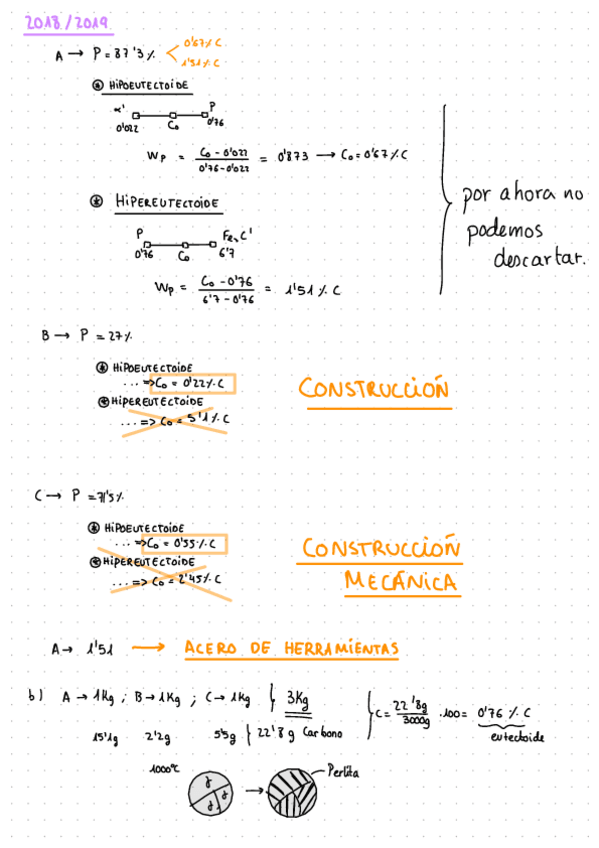 2018/2019
A → P = 87'3 % < 0'67 % C
1'51 % C
* HIPOEUTECTOIDE
α' P
0'022 Co 0'76
Wp = Co - 0'022 / 0'76 - 0'022 = 0'873 → Co = 0'67 % C
* HIPEREUTECTOIDE
P Fe₃C'
0'76 Co 6'7
Wp = Co - 0'76 / 6'7 - 0'76 = 1'51 % C
por ahora no
podemos
descartar.
B → P = 27 %
* HIPOEUTECTOIDE
... => Co = 0'22 % C
* HIPEREUTECTOIDE
... => Co = 5'1 % C
CONSTRUCCIOÑ
C → P = 71'5 %
* HIPOEUTECTOIDE
... => Co = 0'55 % C
* HIPEREUTECTOIDE
... => Co = 2'45 % C
CONSTRUCCIOÑ
MECÁNICA
A → 1'51 → ACERO DE HERRAMIENTAS
b) A → 1Kg ; B → 1Kg ; C → 1Kg } 3Kg
15'1g 2'2g 5'5g } 22'8 g Carbono
{ C = 22'8g / 3000g · 100 = 0'76 % C
eutectoide
1000ºC
γ γ γ → Perlita